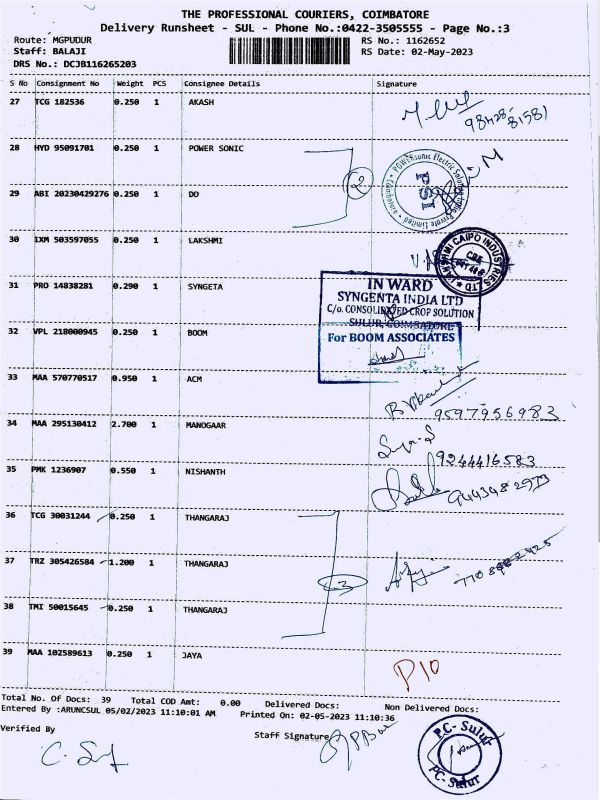 THE PROFESSIONAL COURIERS, COIMBATORE
Delivery Runsheet - SUL - Phone No.:0422-3505555 - Page No.:3
Route: MGPUDUR RS No.: 1162652
Staff: BALAJI RS Date: 02-May-2023
DRS No.: DCJB116265203
S No Consignment No Weight PCS Consignee Details Signature
27 TCG 182536 0.250 1 AKASH
98428-81581
28 HYD 95091701 0.250 1 POWER SONIC
2
PSI
29 ABI 20230429276 0.250 1 DO
30 IXM 503597055 0.250 1 LAKSHMI
LAKSHMI CAIPO INDUSTRIES LTD
31 PRO 14838281 0.290 1 SYNGETA
IN WARD
SYNGENTA INDIA LTD
C/o. CONSOLIDATED CROP SOLUTION
SULUR, COIMBATORE
32 VPL 218000945 0.250 1 BOOM
For BOOM ASSOCIATES
33 MAA 570770517 0.950 1 ACM
9597956983
34 MAA 295130412 2.700 1 MANOGAAR
9244416583
35 PMK 1236907 0.550 1 NISHANTH
36 TCG 30031244 0.250 1 THANGARAJ
37 TRZ 305426584 1.200 1 THANGARAJ
3
38 TMI 50015645 0.250 1 THANGARAJ
39 MAA 102589613 0.250 1 JAYA
P10
Total No. Of Docs: 39 Total COD Amt: 0.00 Delivered Docs: Non Delivered Docs:
Entered By :ARUNCSUL 05/02/2023 11:10:01 AM Printed On: 02-05-2023 11:10:36
Verified By Staff Signature
PC- Sulur
PC- Sulur